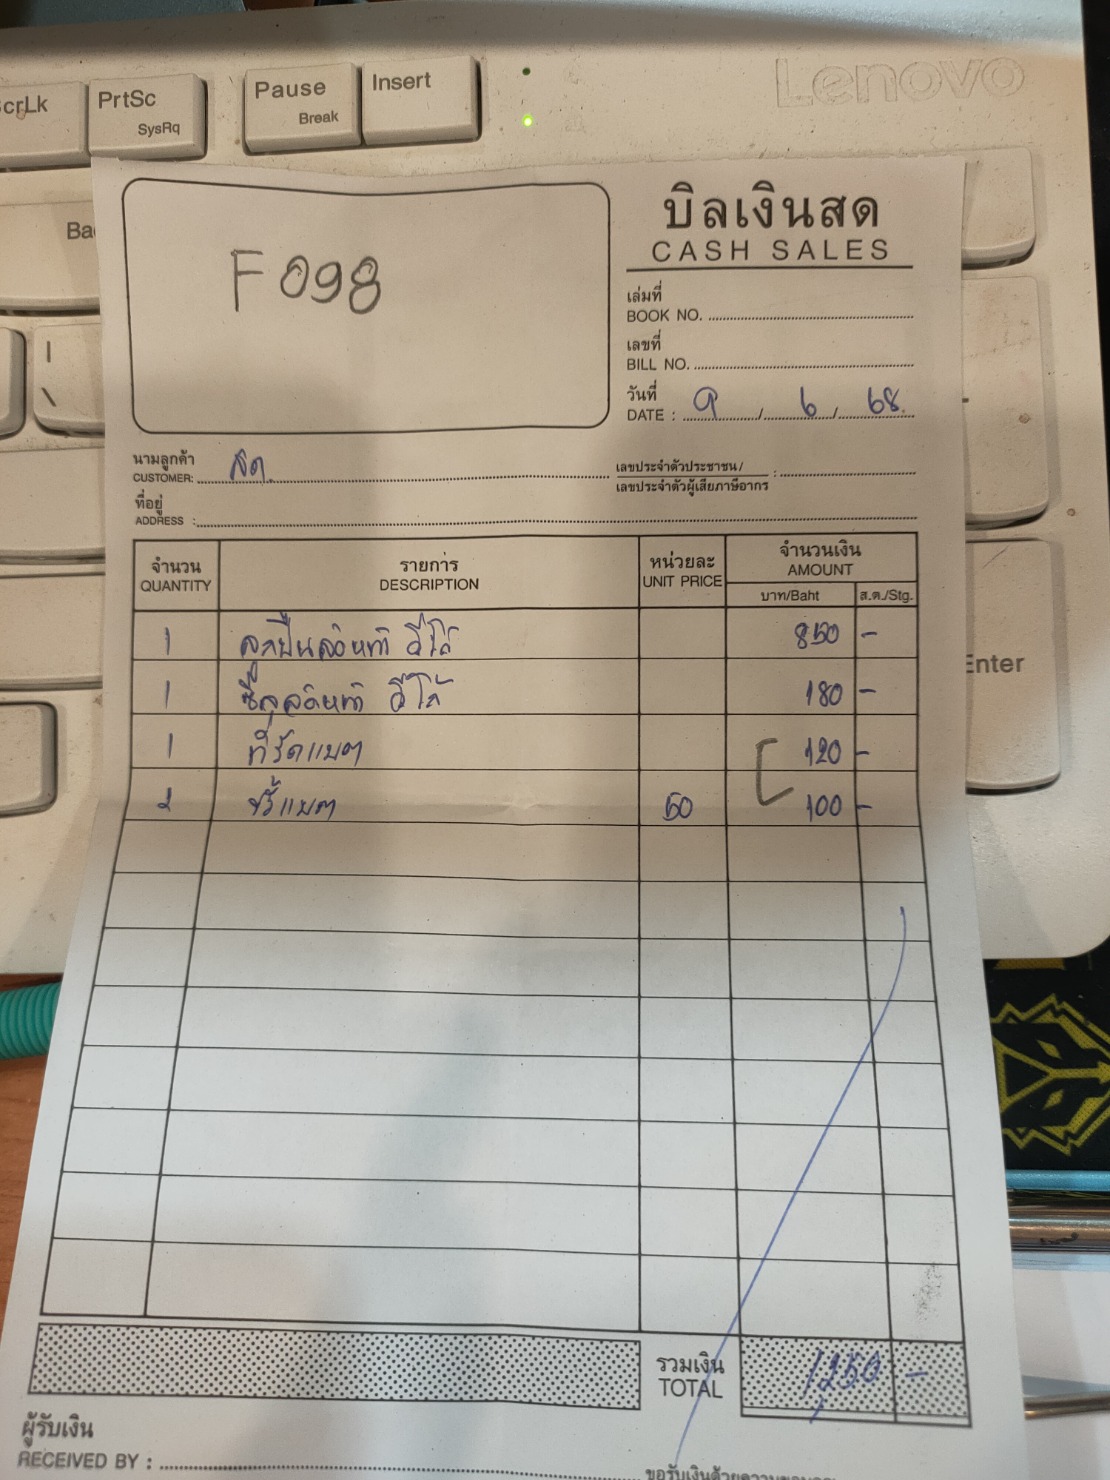 ScrLk
PrtSc
SysRq
Pause
Break
Insert
Lenovo
Enter
F 098
บิลเงินสด
CASH SALES
เล่มที่
BOOK NO.
เลขที่
BILL NO.
วันที่
DATE : 9 / 6 / 68.
นามลูกค้า
CUSTOMER: สด.
เลขประจำตัวประชาชน/
เลขประจำตัวผู้เสียภาษีอากร :
ที่อยู่
ADDRESS :
จำนวน รายการ หน่วยละ จำนวนเงิน
QUANTITY DESCRIPTION UNIT PRICE AMOUNT
บาท/Baht ส.ต./Stg.
1 ลูกปืนล้อหน้า อีโก้ 850 -
1 ซีลล้อหน้า อีโก้ 180 -
1 ที่รัดแบต 120 -
2 ขั้วแบต 50 100 -
รวมเงิน
TOTAL 1,250 -
ผู้รับเงิน
RECEIVED BY :